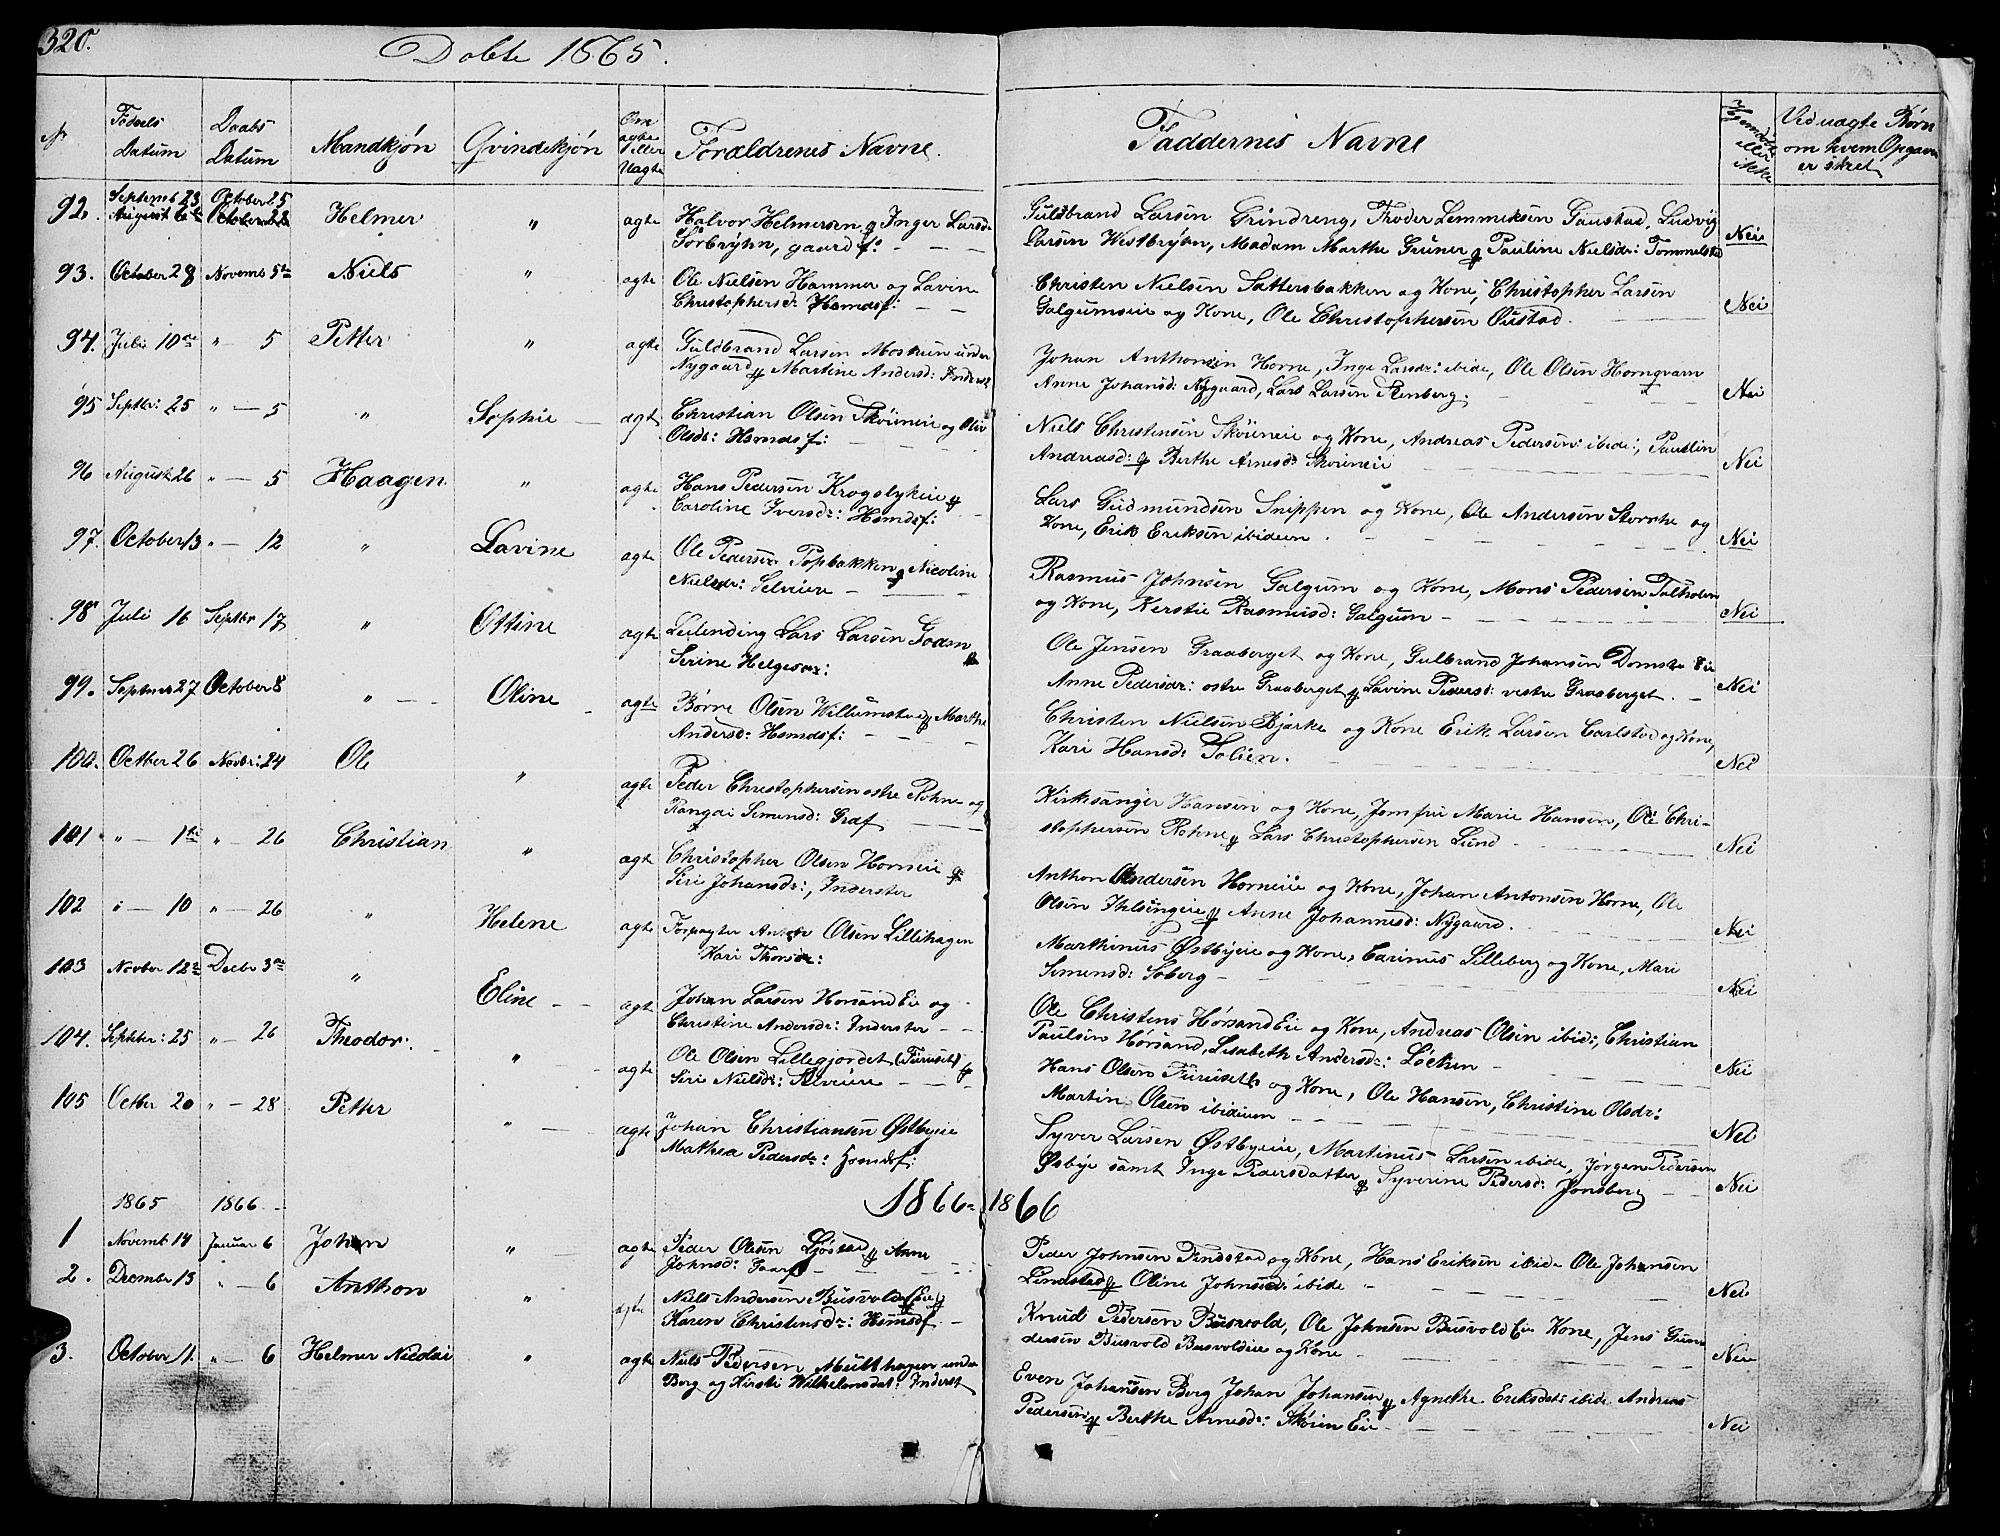 320.
Døbte 1865.
№ Fødsels Datum Daabs Datum Mandkjøn Qvindekjøn Om ægte eller Uægte Forældrenes Navne. Faddernes Navne Hjemdøbt eller ikke Ved uægte Børn om hvem Opgave er skeet
92. Septemb 23 October 25 Helmer " ægte Halvor Helmersen og Inger Larsdr
August 6te October 22 Torbryhn, gaardf:
Guldbrand Larsen Grindreng, Froder Lemmeksen Gaustad, Ludvig
Larsen Westbryhn, Madam Marthe Gruner og Pauline Nielsdr: Tommelsta Nei
93. October 28 Novemb 5te Niels " ægte Ole Nielsen Hammer og Lavine
Christophersd: Hsmdsf:
Christen Nielsen Sattersbakken og Kone, Christopher Larsen
Galgumseie og Kone, Ole Christophersen Oustad. Nei
94. Juli 10de " 5 Petter " ægte Guldbrand Larsen Moskuen under
Nygaard og Martine Andersd: Inderst
Johan Anthonsen Horne, Inge Larsdr: ibide, Ole Olsen Hornqvarn
Anne Johansd: Nygaard, Lars Larsen Stenberg. Nei
95 Septbr: 25 " 5 " Sophie ægte Christian Olsen Skøieneie og Oliv
Olsdr: Hsmdsf:
Niels Christensen Skøieneie og Kone, Andreas Pedersen: ibide:, Paulin
Andreasd: og Berthe Arnesdr Skøieneie Nei
96 August 26 " 5 Haagen " ægte Hans Pedersen Krogslykeie og
Caroline Iversdr: Hsmdsf:
Lars Gudmundsen Snippen og Kone, Ole Andersen Storrhe og
Kone, Erik Eriksen ibideen. Nei
97. October 13 " 12 " Lavine ægte Ole Pedersen Popbakken og Nicoline
Nielsdr: Selveiere
Rasmus Johnsen Galgum og Kone, Mons Pedersen Talholen
og Kone, Kerstie Rasmusd: Galgum Nei
98 Juli 16 Septbr 17 " Ottine ægte Leilending Lars Larsen
Serine Helgesdr:
Ole Jensen Graaberget og Kone, Gulbrand Johansen Domste Eie
Anne Pedersdr: østre Graaberget og Lavine Pedersd: vestre Graaberget. Nei
99. Septmer 27 October 8 " Oline ægte Børre Olsen Willumstad og Marthe
Andersd: Hsmdsf:
Christen Nielsen Bjørke og Kone Erik Larsen Carlstad og Kone,
Kari Hansd: Solien. Nei
100. Octber 26 Novbr: 24 Ole " ægte Peder Christophersen østre Rohne og
Rangdi Semensd: Graf
Kirksanger Hansen og Kone, Jomfru Marie Hansen, Ole Chri-
stophersen Rohne og Lars Christophersen Lund Nei
101 " 1te " 26 Christian " ægte Christopher Olsen Horneeie og
Siri Johansdr:, Inderster
Anthon Andersen Horneie og Kone, Johan Antonsen Horne, Ole
Olsen Ihlsengeie og Anne Johannesd: Nygaard. Nei
102 i 10 " 26 " Helene ægte Forpagter Anton Olsen Lillehagen
Kari Thorsdr:
Marthinus Østbyeie og Kone, Carinus Lilleberg og Kone, Mari
Simensd: Soberg Nei
103 Novber 12te Decbr 3de " Eline ægte Johan Larsen Horsand Eie og
Christine Andersdr: Inderster
Ole Christens Hørsand Eie og Kone, Andreas Olsen ibid:, Christian
Paulsen Hørsand, Lisabeth Andersdr: Løcken Nei
104. Septbter: 25 " 26 Theodor. " ægte Ole Olsen Lillegjordet (Furuset) og
Siri Nielsdr: Selveiere
Hans Olsen Furuseth og Kone, Ole Hansen, Christine Olsdr:
Martin Olsen ibideen Nei
105 Octber 20 " 28 Petter " ægte Johan Christiansen Østbyeie
Mathea Pedersdr: Hsmdsf:
Syver Larsen Østbyeie, Martinus Larsen ibide, Jørgen Pedersen
Østbye samt Inge Pedersdatter og Syverine Pedersd: Jonsberg Nei
1865 1866 1866 1866
1 Novemb 14 Januar 6 Johan " ægte Peder Olsen Ljøstad og Anne
Johnsd: Gaarf
Peder Johnsen Findstad og Kone, Hans Eriksen ibide Ole Johansen
Lindstad og Oline Johnsd: ibide Nei
2. Decmber 13 " 6 Anthon " ægte Niels Andersen Busvold Eie og
Karen Christensdr: Hsmdsf.
Knud Pedersen Busvold, Ole Johnsen Busvold Eie Kone, Jens Gun
dersen Busvold Busvoldeie og Kone Nei
3. October 11. " 6 Helmer Nicolai " ægte Niels Pedersen Multhagen under
Berg og Kirsti Wilhelmsdat: Inderst
Even Johansen Berg Johan Johansen og Agnethe Eriksdat: ibide Andreas
Pedersen og Berthe Arnesdr: Skøien Eie Nei